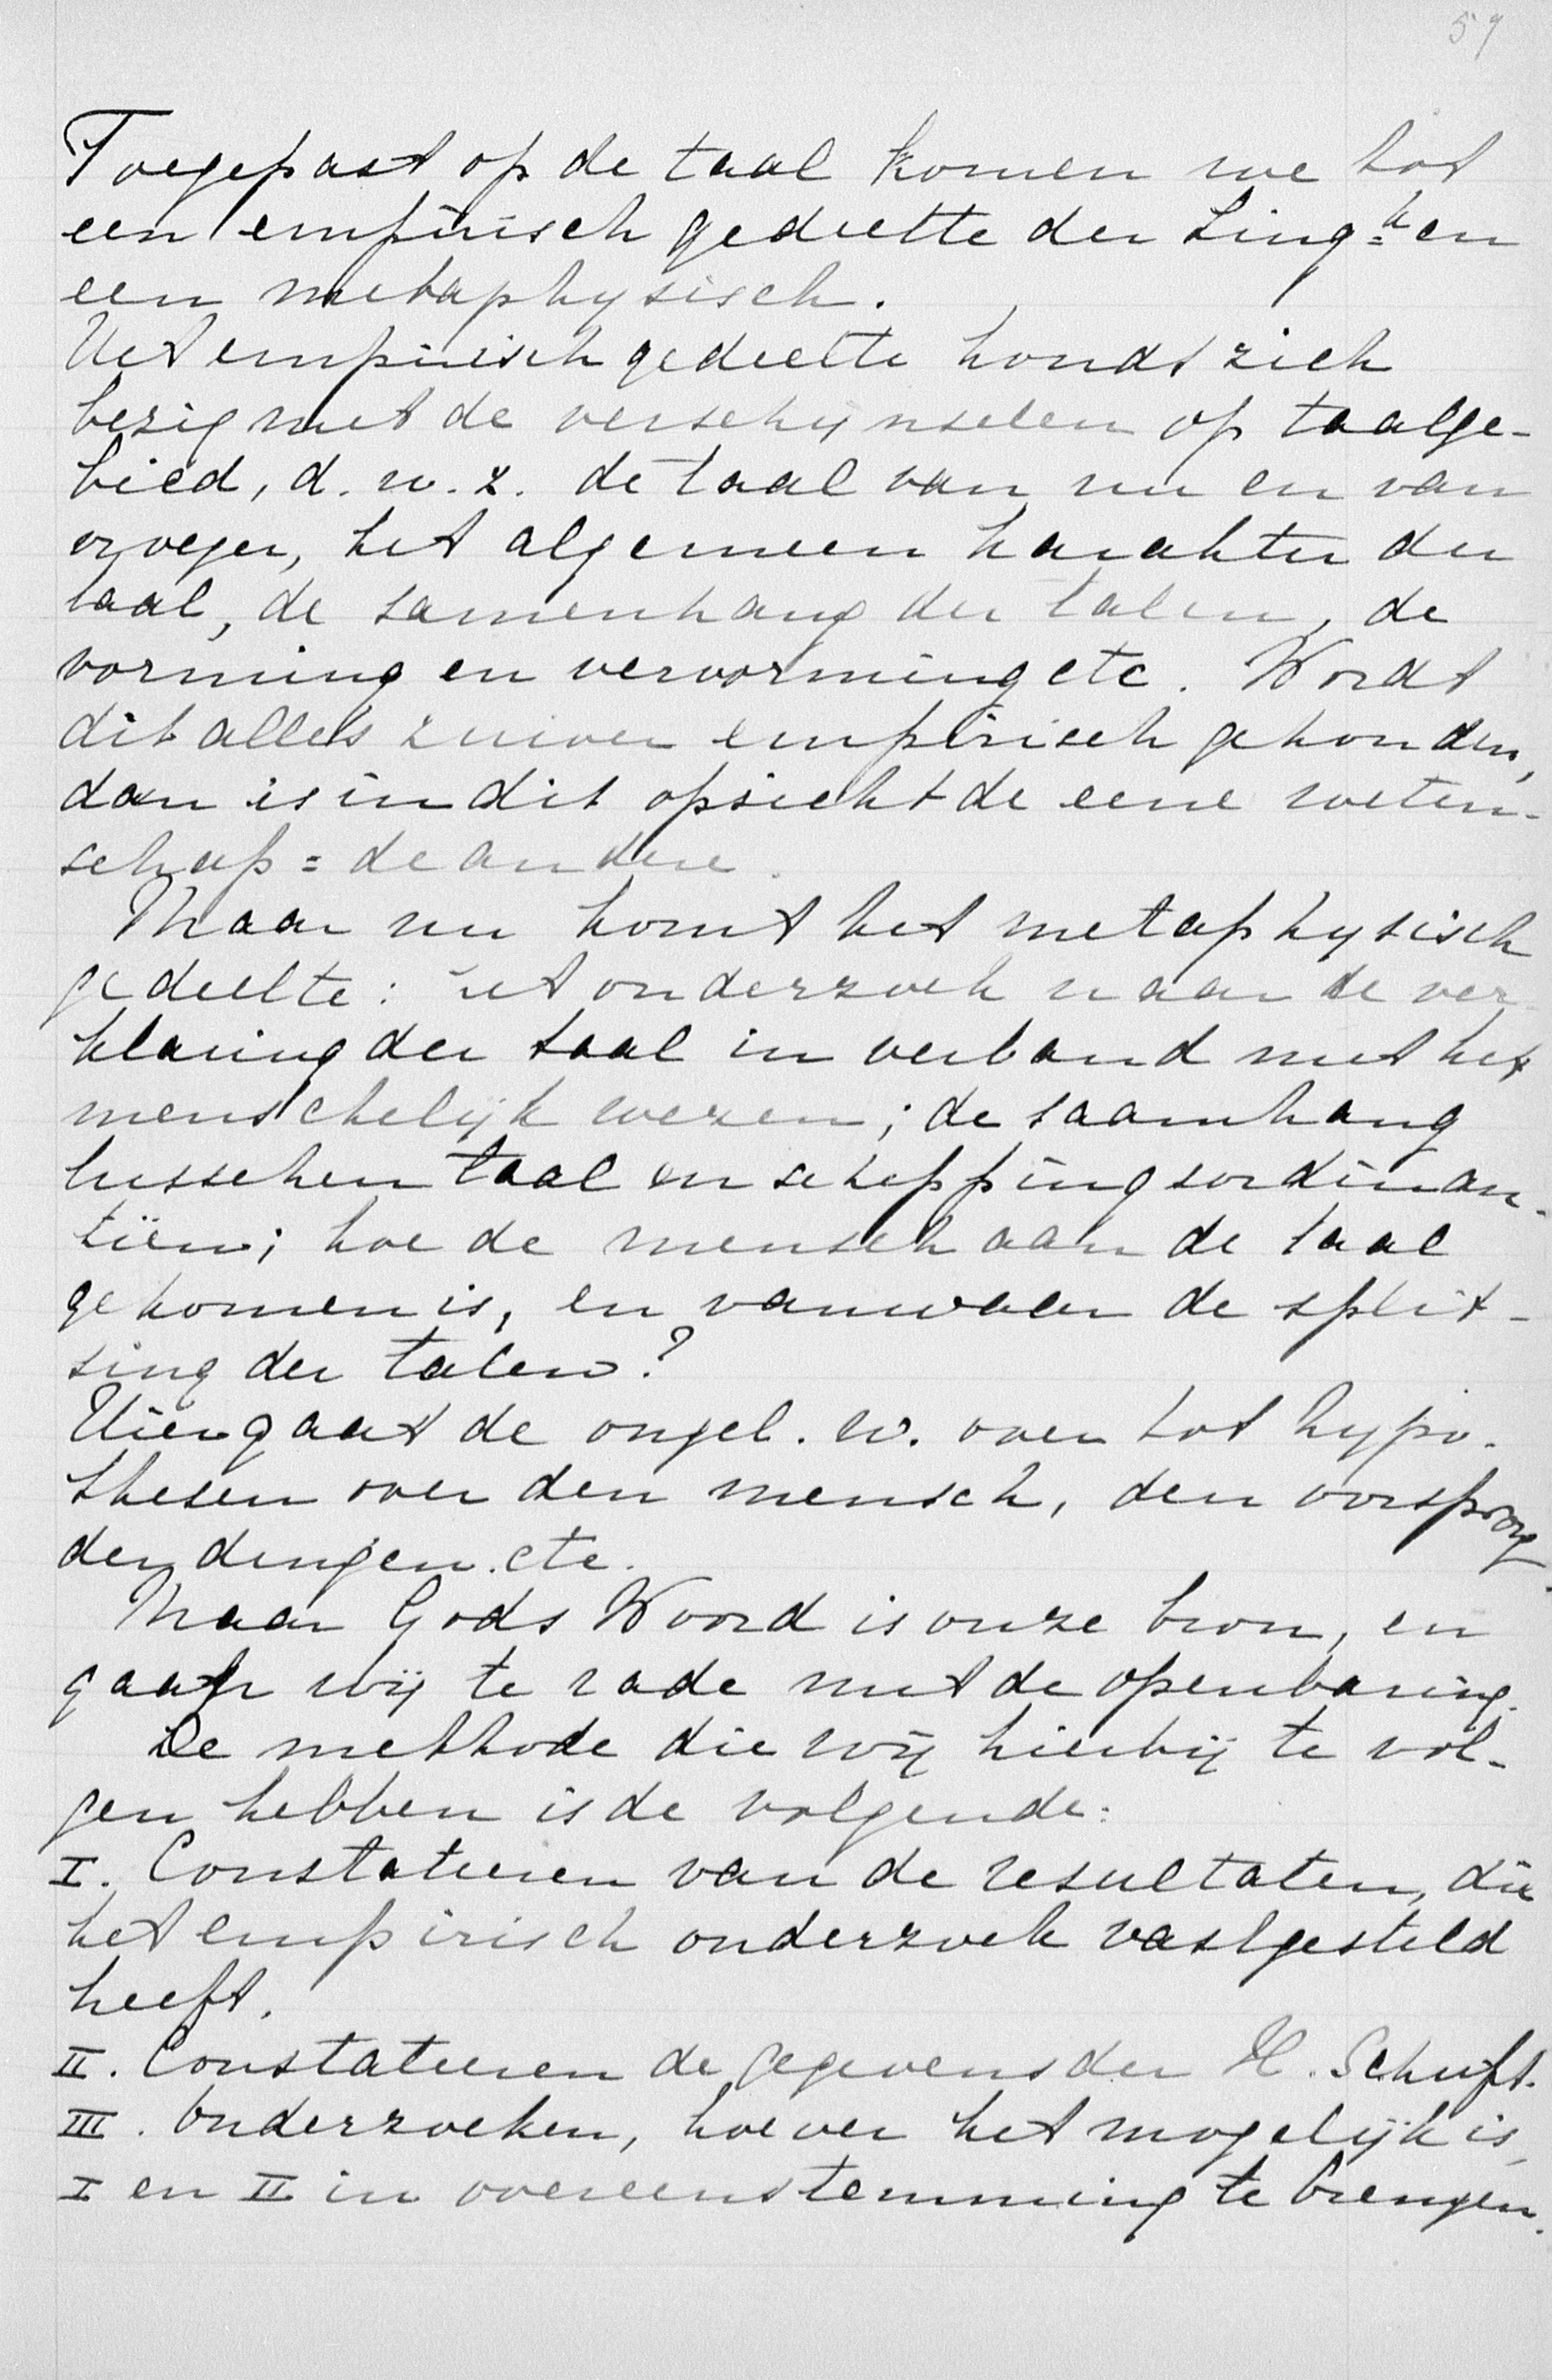 59
Toegepast op de taal komen we tot
een empirisch gedeelte der Ling=k en
een metaphysisch.
Het empirisch gedeelte houdt zich
bezig met de verschijnselen op taalge-
bied, d. w. z. de taal van nu en van
vroeger, het algemeen karakter der
taal, de samenhang der talen, de
vorming en vervorming etc. Wordt
dit alles zuiver empirisch gehouden,
dan is in dit opzicht de eene weten-
schap = de andere.
Maar nu komt het metaphysisch
gedeelte: het onderzoek naar de ver
klaring der taal in verband met het
menschelijk wezen; de saamhang
tusschen taal en scheppingsordinan-
tiën; hoe de mensch aan de taal
gekomen is, en vanwaar de split-
sing der talen?
Hier gaat de ongel. w. over tot hypo-
thesen over den mensch, den oorsprong
der dingen. etc.
Maar Gods Woord is onze bron, en
gaan wij te rade met de openbaring.
De methode die wij hierbij te vol-
gen hebben is de volgende:
I. Constateeren van de resultaten, die
het empirisch onderzoek vastgesteld
heeft.
II. Constateeren de gegevens der H. Schrift.
III. Onderzoeken, hoever het mogelijk is,
I en II in overeenstemming te brengen.